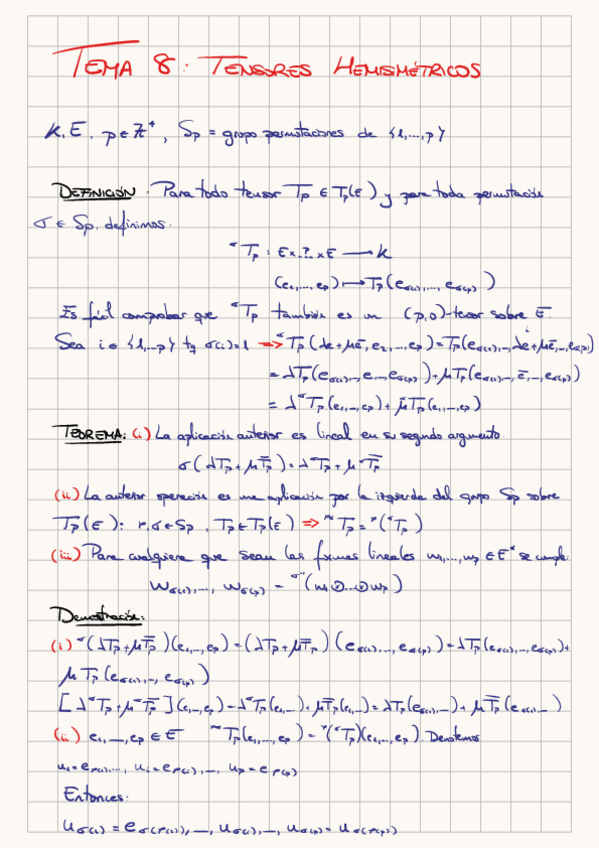 TEMA 8: TENSORES HEMISIMÉTRICOS
K, E, p ∈ Z⁺, Sp = grupo permutaciones de {1,...,p}
DEFINICIÓN. Para todo tensor Tp ∈ Tp(E) y para toda permutación
σ ∈ Sp, definimos:
σTp : E×.?.×E → K
(e₁,...,ep) ↦ Tp(eσ(1),...,eσ(p))
Es fácil comprobar que σTp también es un (p,0)-tensor sobre E.
Sea i ∈ {1,...p} tq σ(i)=1 => σTp(λe+μē, e₂,...,ep)=Tp(eσ(1),...,λe+μē,...,eσ(p))
= λTp(eσ(1),...e,...eσ(p))+μTp(eσ(1),...,ē,...,eσ(p))
= λσTp(e₁,...,ep)+μσTp(e₁,...,ep)
TEOREMA: (i) La aplicación anterior es lineal en su segundo argumento
σ(λTp+μT̄p)=λσTp+μσT̄p
(ii) La anterior operación es una aplicación por la izquierda del grupo Sp sobre
Tp(E): μ,σ∈Sp, Tp∈Tp(E) => μσTp=μ(σTp)
(iii) Para cualquiera que sean las formas lineales w₁,...,wp ∈ E* se cumple:
wσ(1),..., wσ(p) = σ⁻¹(w₁⊗...⊗wp)
Demostración:
(i) σ(λTp+μT̄p)(e₁,...,ep)=(λTp+μT̄p)(eσ(1),...,eσ(p))=λTp(eσ(1),...,eσ(p))+
μT̄p(eσ(1),...,eσ(p))
[λσTp+μσT̄p](e₁,...,ep)=λσTp(e₁,...)+μσT̄p(e₁,...)=λTp(eσ(1),...)+μT̄p(eσ(1),...)
(ii) e₁,...,ep ∈ E μσTp(e₁,...,ep)=μ(σTp)(e₁,...,ep). Denotemos
u₁=eμ(1),..., ui=eμ(i),..., up=eμ(p)
Entonces:
uσ(1)=eσ(μ(1)),..., uσ(i),..., uσ(p)=uσ(μ(p))